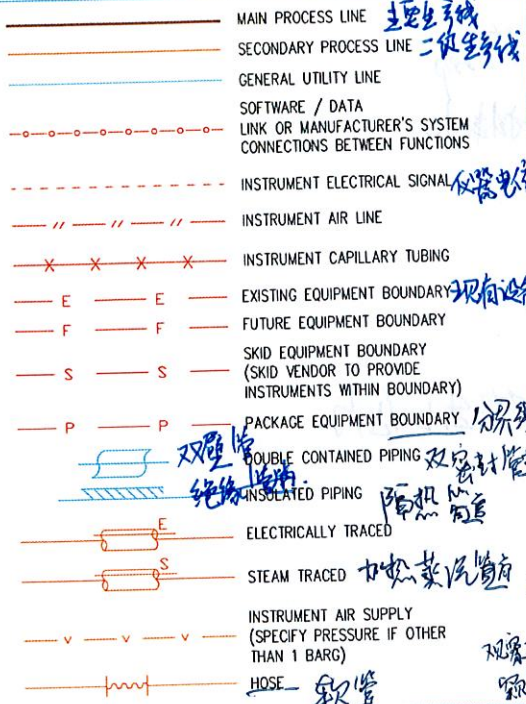 MAIN PROCESS LINE 主要生产线
SECONDARY PROCESS LINE 二次生产线
GENERAL UTILITY LINE
SOFTWARE / DATA
LINK OR MANUFACTURER'S SYSTEM
CONNECTIONS BETWEEN FUNCTIONS
INSTRUMENT ELECTRICAL SIGNAL 仪器电
INSTRUMENT AIR LINE
INSTRUMENT CAPILLARY TUBING
E E EXISTING EQUIPMENT BOUNDARY 现有设备
F F FUTURE EQUIPMENT BOUNDARY
SKID EQUIPMENT BOUNDARY
S S (SKID VENDOR TO PROVIDE
INSTRUMENTS WITHIN BOUNDARY)
P P PACKAGE EQUIPMENT BOUNDARY 分界线
双壁管 DOUBLE CONTAINED PIPING 双密封管
绝缘 INSULATED PIPING 隔热
E ELECTRICALLY TRACED
S STEAM TRACED 加热蒸汽管
INSTRUMENT AIR SUPPLY
V V V (SPECIFY PRESSURE IF OTHER
THAN 1 BARG)
HOSE 软管